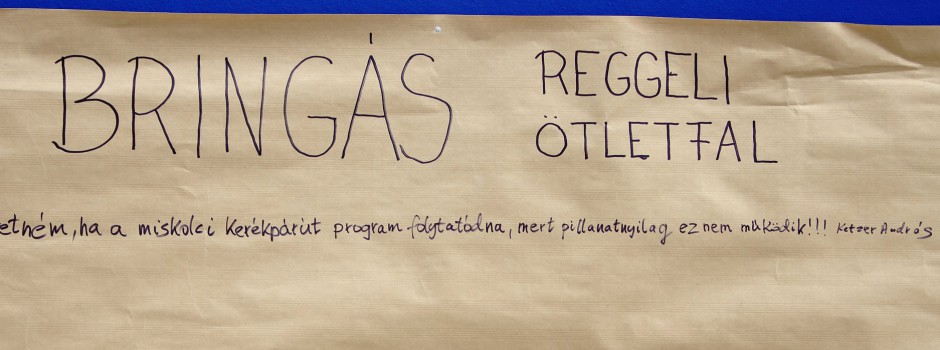 BRINGÁS
REGGELI
ÖTLETFAL
etném, ha a miskolci kerékpárút program folytatódna, mert pillanatnyilag ez nem működik!!! Ketzer András